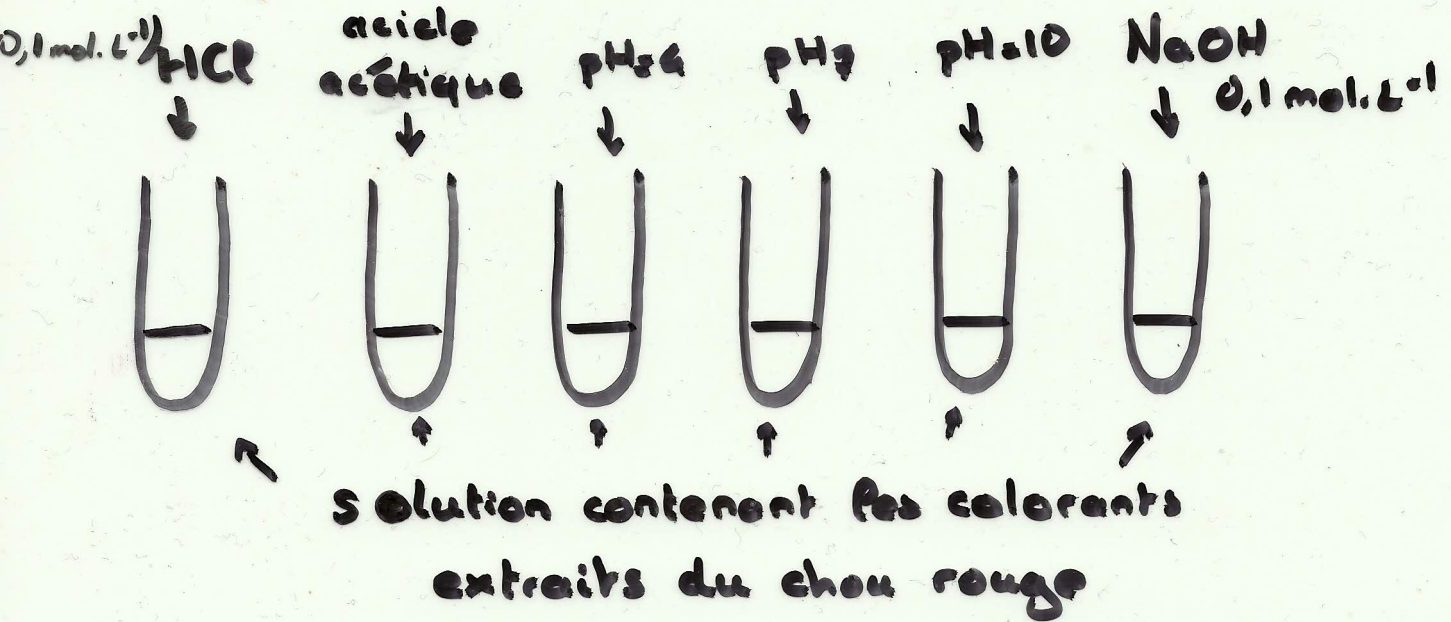 0,1 mol. L⁻¹ HCl
acide
acétique
pH=4
pH7
pH=10
NaOH
0,1 mol. L⁻¹
solution contenant les colorants
extraits du chou rouge